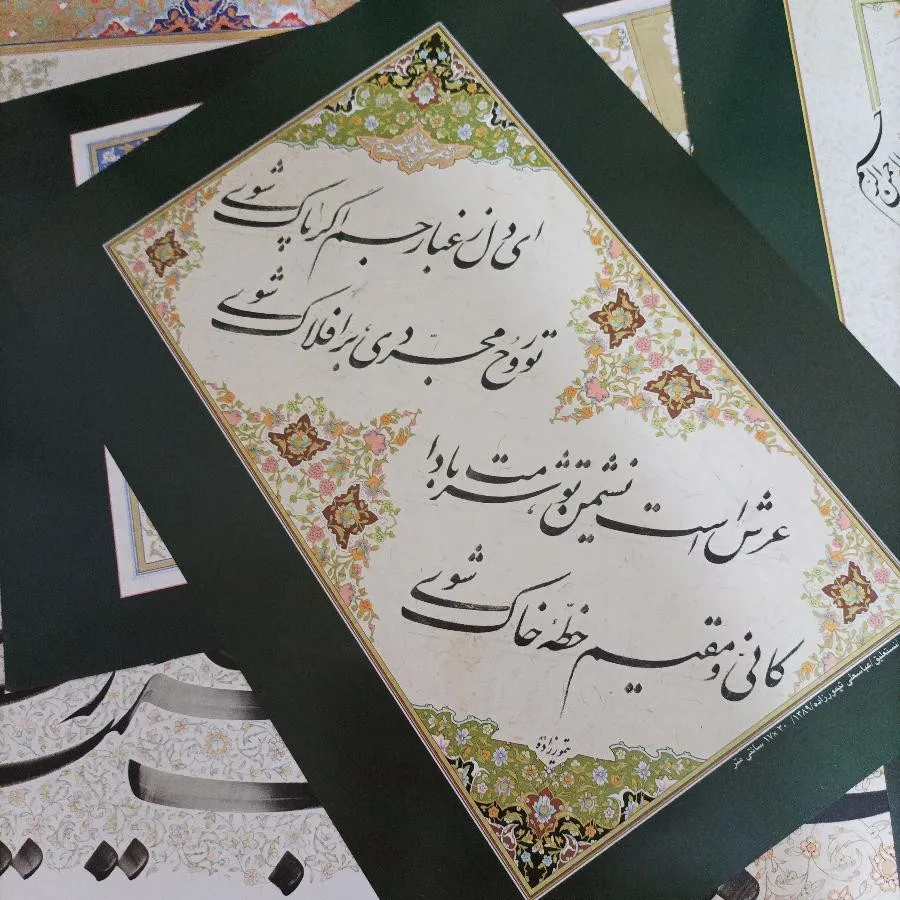 ای دل ز غبار جسم اگر پاک شوی
تو روح مجردی بر افلاک شوی
عرش است نشیمن تو شرمت بادا
کائی و مقیم خطهٔ خاک شوی
تیمورزاده
نستعلیق / عباسعلی تیمورزاده / ۱۳۸۹ / ۳۰ × ۱۷ سانتی متر